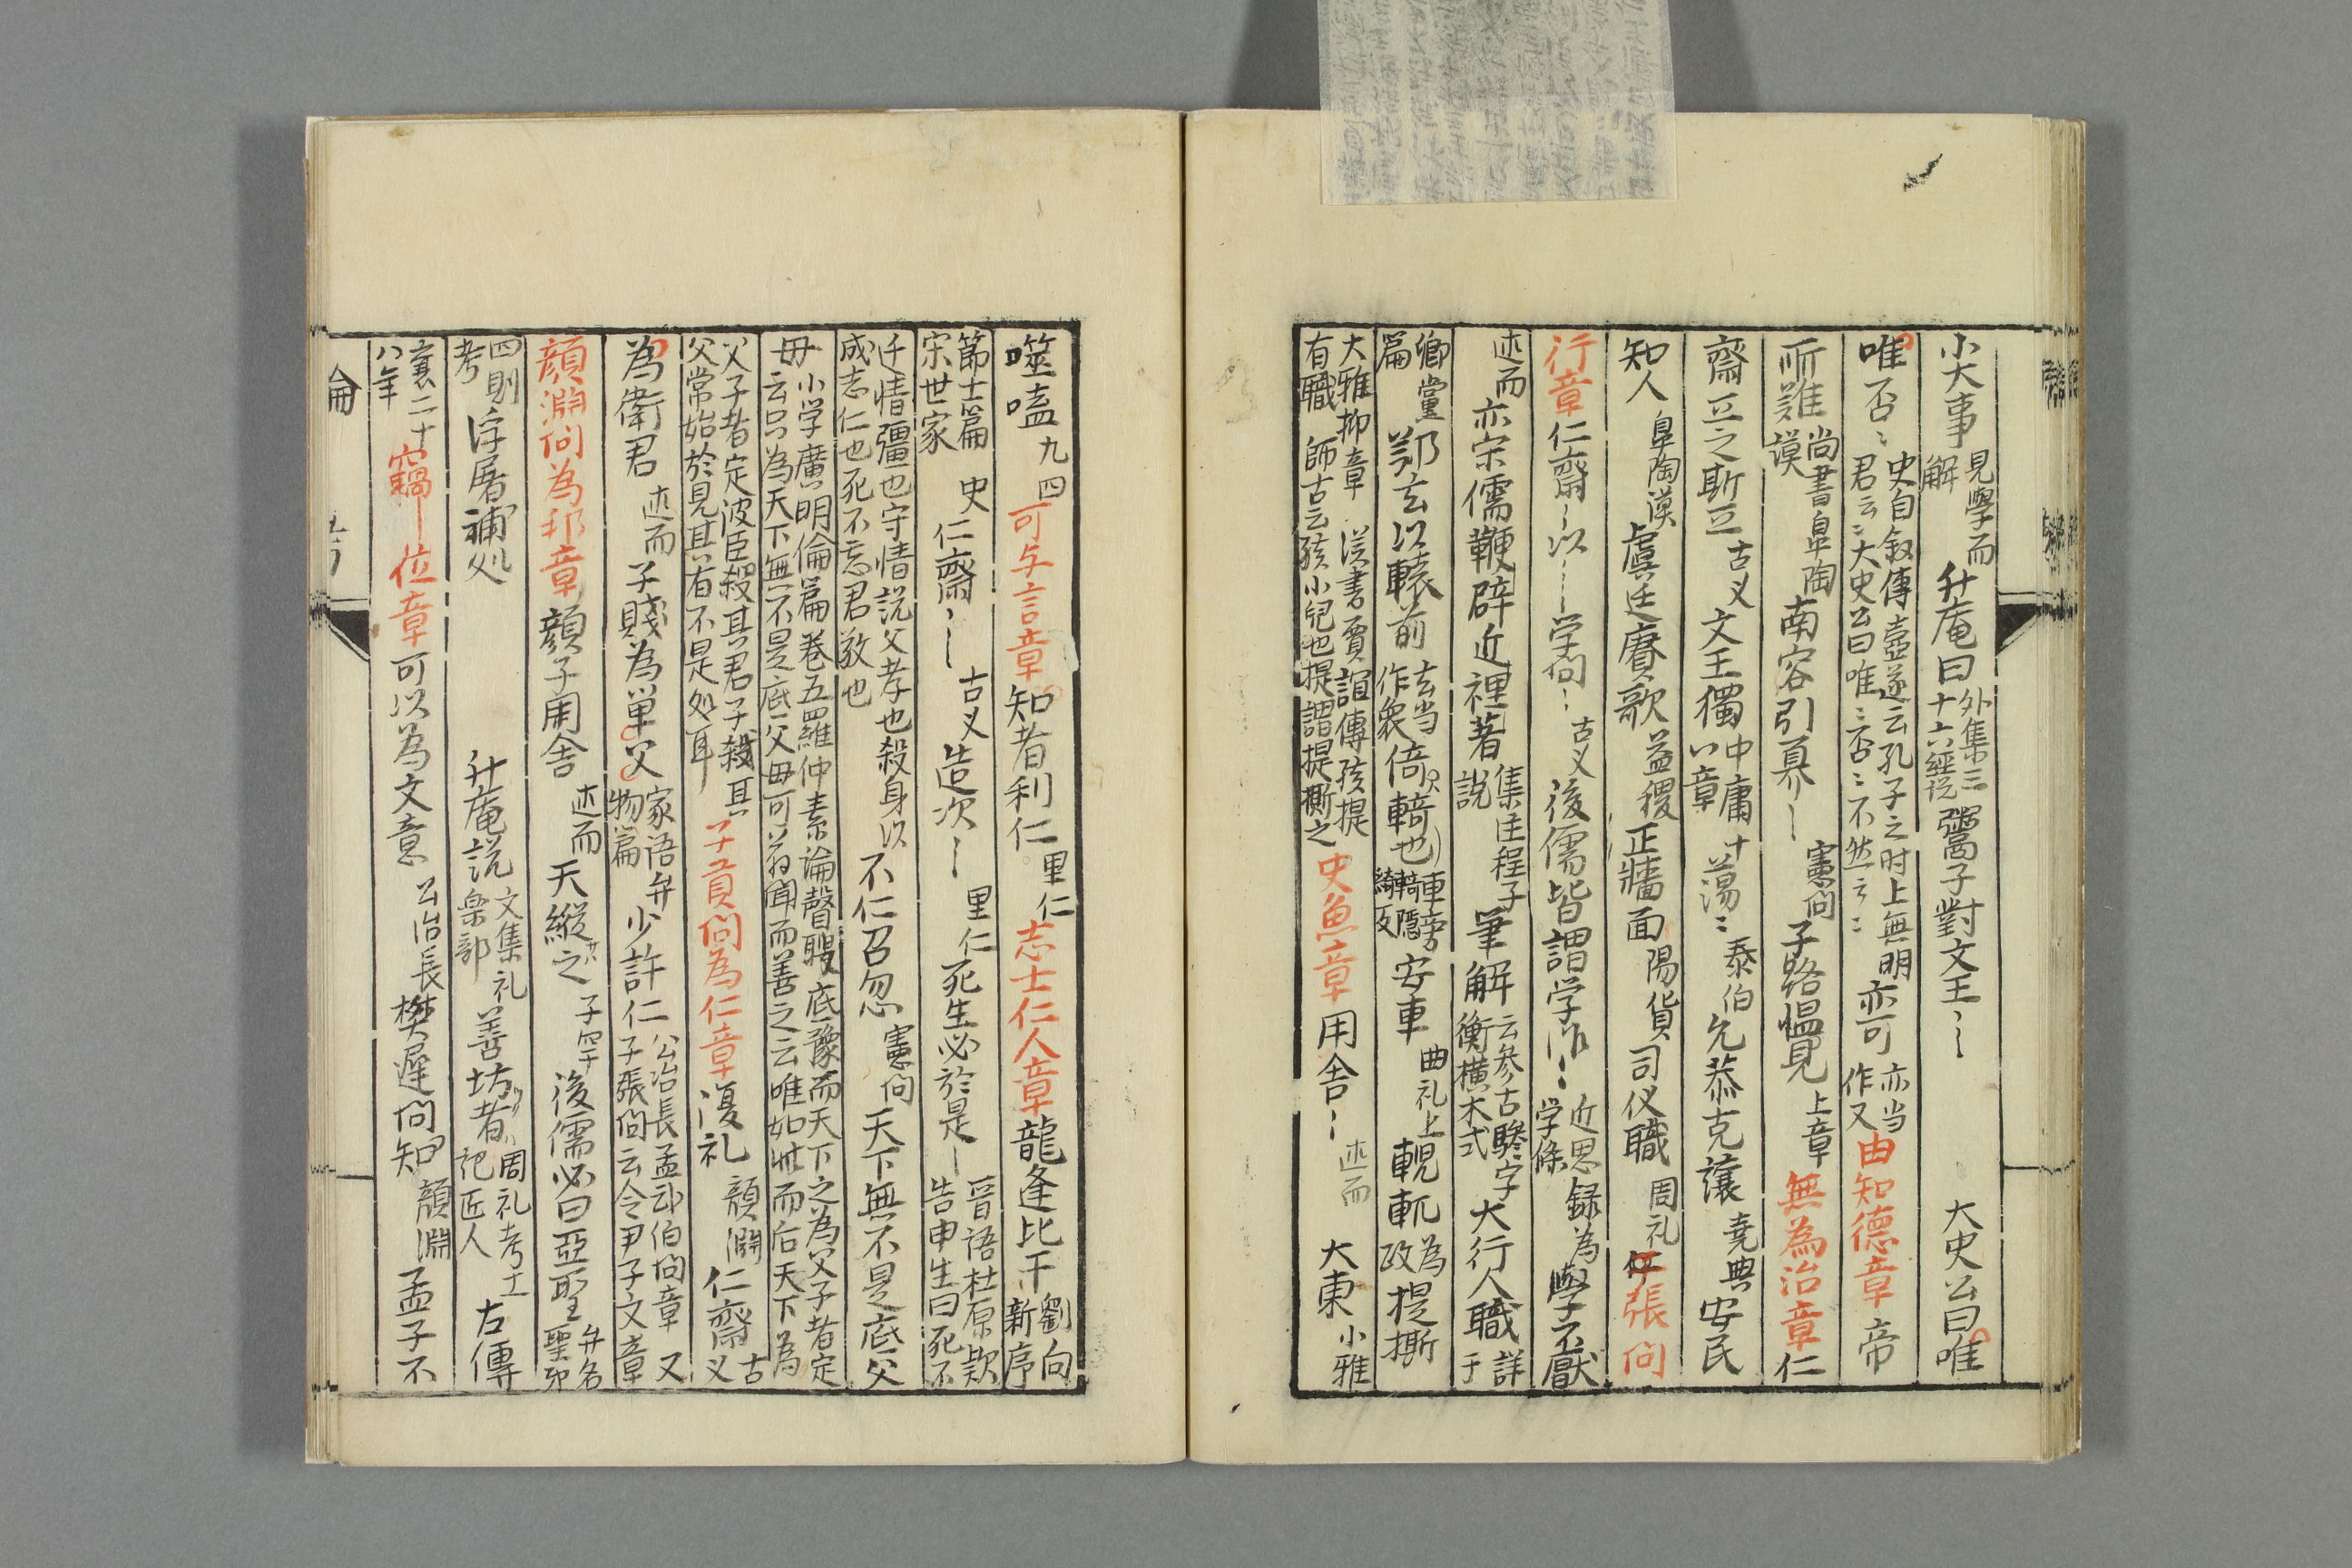 小大事 見學而解 升庵曰 外集三十六經説 鬻子對文王〻〻 大史公曰唯
唯否〻 史自敘傳壺遂云孔子之时上無明君云〻大史公曰唯〻否〻不然云〻 亦可 亦当作又 由知德章 帝
所難 尚書皐陶謨 南容引羿〻 憲问 子路慍見 上章 無為治章 仁
齋立之斯立 古义 文王獨 中庸十八章 蕩〻 泰伯 允恭克讓 堯典 安民
知人 皐陶謨 虞廷賡歌 益稷 正牆面 陽貨 司仪職 周礼 子張问
行章 仁齋〻以〻〻学问〻 古义 後儒皆謂学作〻 近思録為学條 學不厭
述而 亦宋儒鞭辟近裡著 集註程子説 筆解 云参古驂字衡橫木式 大行人職 詳于
鄉黨篇 鄭玄以轅前 玄当作衆 倚輢也 車旁輢隱綺反 安車 曲礼上 輗軏 為政 提撕
大雅抑章 漢書賈誼傳孩提有職 師古云孩小兒也提謂提撕之 史魚章 用舍〻 述而 大東 小雅
噬嗑 九四 可与言章 知者利仁 里仁 志士仁人章 龍逢比干 劉向新序
節士篇 史宋世家 仁齋〻〻 古义 造次〻 里仁 死生必於是〻 晋語杜原款告申生曰死不
迁情彊也守情説父孝也殺身以成志仁也死不忘君敬也 不仁召忽 憲问 天下無不是底父
毋 小学廣明倫篇卷五羅仲素論瞽瞍底豫而天下之為父子者定云只為天下無不是底父毋了翁聞而善之云唯如此而后天下為
父子者定彼臣殺其君子殺其父常始於見其有不是処耳 子貢问為仁章 復礼 顔淵 仁齋 古义
為衛君 述而 子賤為単父 家语弁物篇 少許仁 公冶長孟武伯问章又子張问云令尹子文章
顔淵问為邦章 顔子用舍 述而 天縱之 子罕 後儒必曰亞聖 弁名聖
四則考 浮屠補処 升庵説 文集礼樂部 善坊者 周礼考工記匠人 左傳
襄二十八年 竊〻位章 可以為文章 公冶長 樊遲问知 顔淵 孟子不
論